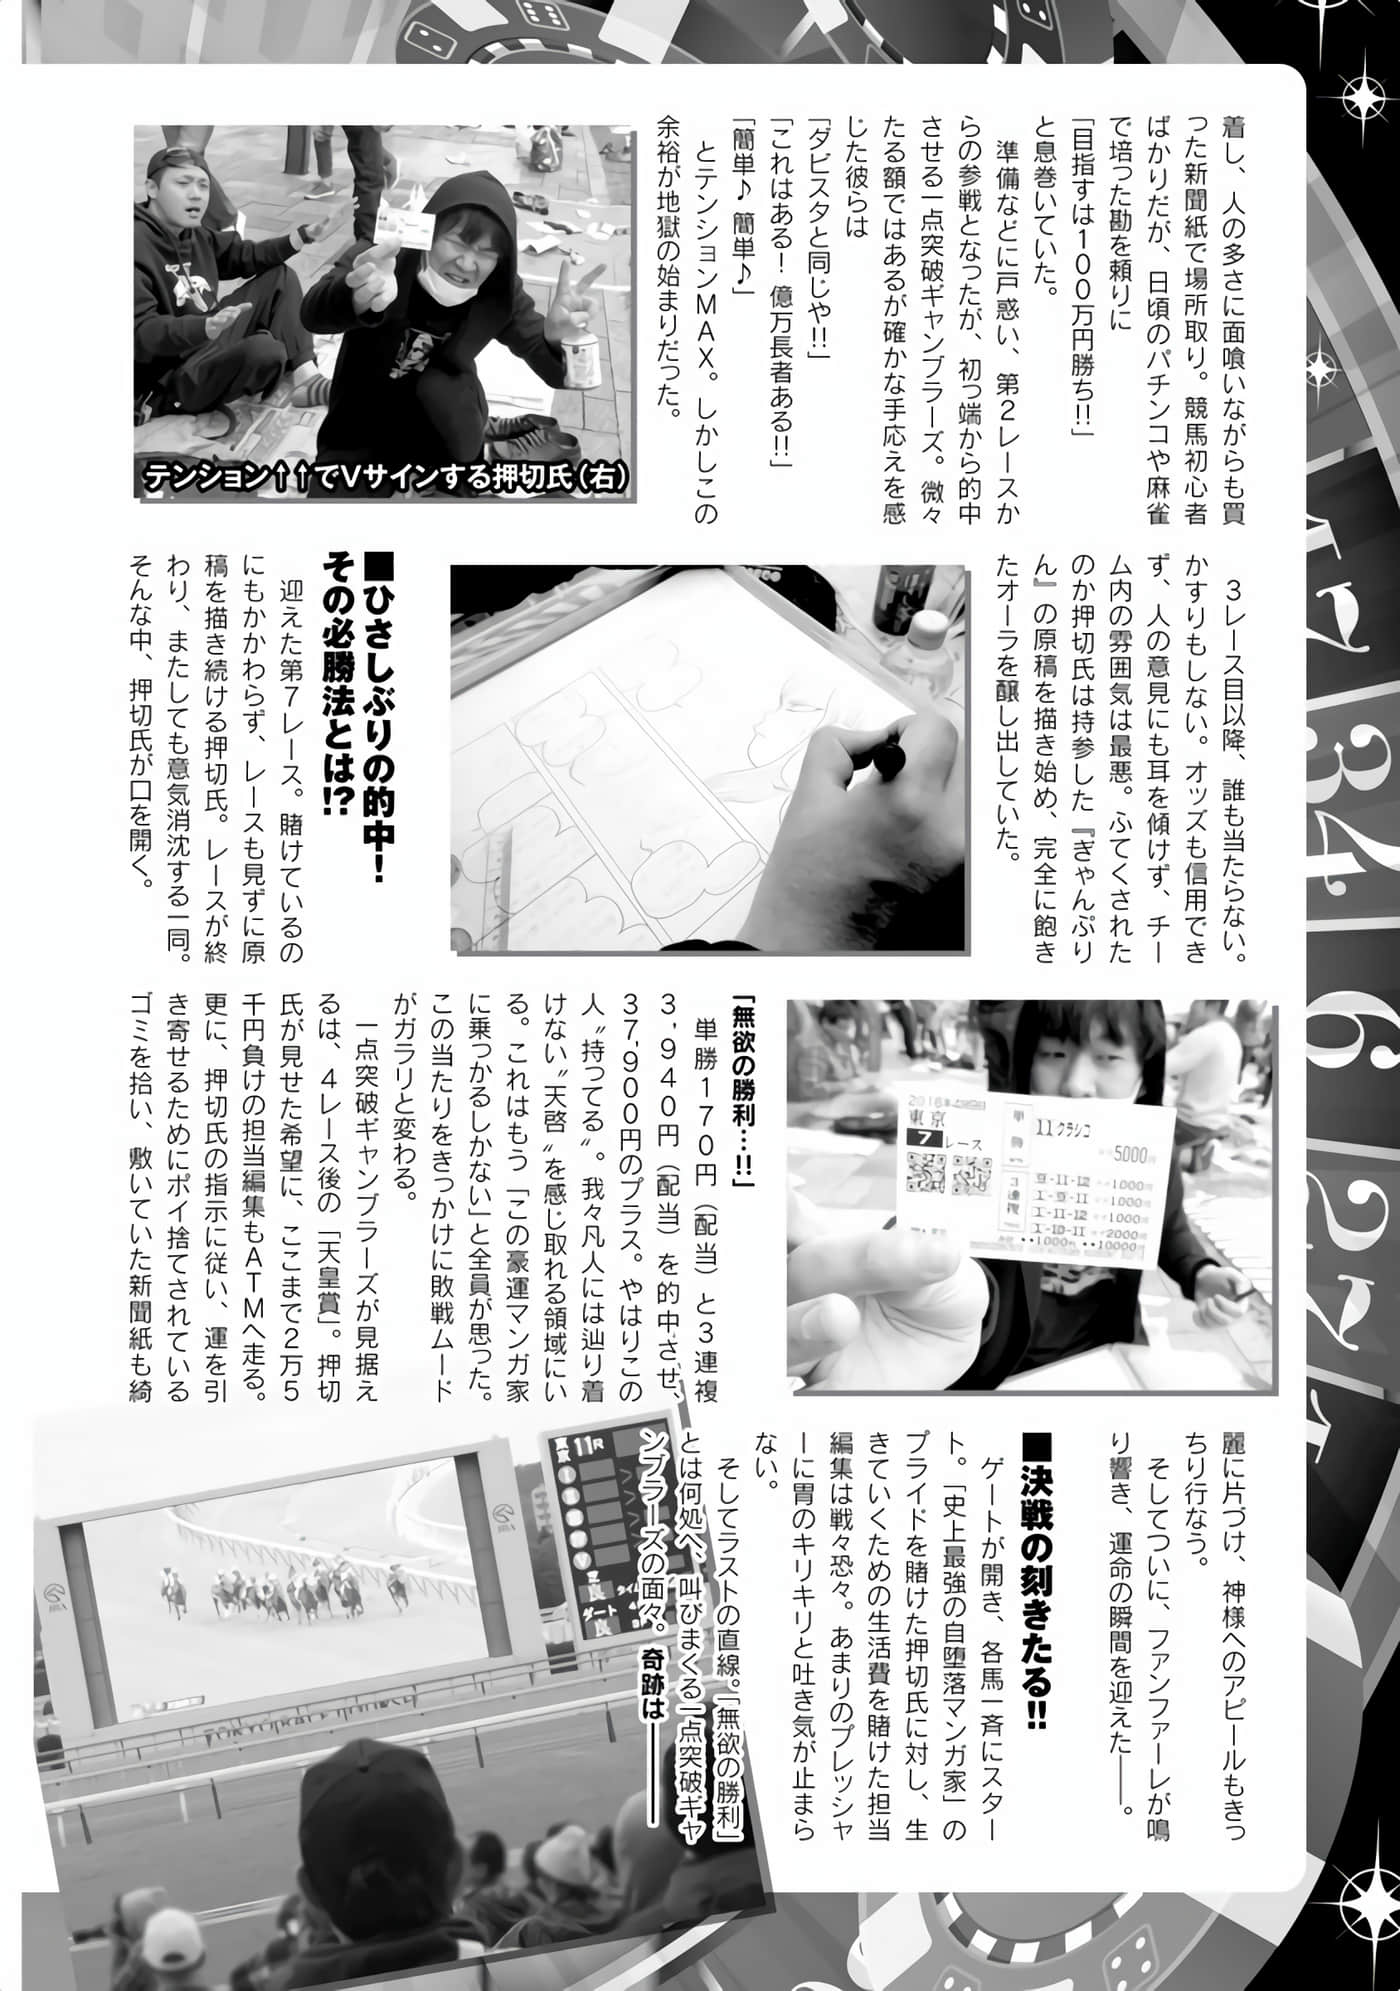 着し、人の多さに面喰いながらも買
った新聞紙で場所取り。競馬初心者
ばかりだが、日頃のパチンコや麻雀
で培った勘を頼りに
「目指すは１００万円勝ち!!」
と息巻いていた。
準備などに戸惑い、第２レースか
らの参戦となったが、初っ端から的中
させる一点突破ギャンブラーズ。微々
たる額ではあるが確かな手応えを感
じた彼らは
「ダビスタと同じや!!」
「これはある！億万長者ある!!」
「簡単♪ 簡単♪」
とテンションＭＡＸ。しかしこの
余裕が地獄の始まりだった。
テンション↑↑でＶサインする押切氏（右）
３レース目以降、誰も当たらない。
かすりもしない。オッズも信用でき
ず、人の意見にも耳を傾けず、チー
ム内の雰囲気は最悪。ふてくされた
のか押切氏は持参した『ぎゃんぷり
ん』の原稿を描き始め、完全に飽き
たオーラを醸し出していた。
■ひさしぶりの的中！
その必勝法とは!?
迎えた第７レース。賭けているの
にもかかわらず、レースも見ずに原
稿を描き続ける押切氏。レースが終
わり、またしても意気消沈する一同。
そんな中、押切氏が口を開く。
2016年
東京
7 レース
11クラシコ
5000円
3連複
9-11-12 1000円
1-9-11 1000円
1-11-12 1000円
1-10-11 2000円
「無欲の勝利…!!」
単勝１７０円（配当）と３連複
３,９４０円（配当）を的中させ、
37,900円のプラス。やはりこの
人〝持ってる〟。我々凡人には辿り着
けない〝天啓〟を感じ取れる領域にい
る。これはもう「この豪運マンガ家
に乗っかるしかない」と全員が思った。
この当たりをきっかけに敗戦ムード
がガラリと変わる。
一点突破ギャンブラーズが見据え
るは、４レース後の「天皇賞」。押切
氏が見せた希望に、ここまで２万５
千円負けの担当編集もＡＴＭへ走る。
更に、押切氏の指示に従い、運を引
き寄せるためにポイ捨てされている
ゴミを拾い、敷いていた新聞紙も綺
麗に片づけ、神様へのアピールもきっ
ちり行なう。
そしてついに、ファンファーレが鳴
り響き、運命の瞬間を迎えた――。
■決戦の刻きたる!!
ゲートが開き、各馬一斉にスター
ト。「史上最強の自堕落マンガ家」の
プライドを賭けた押切氏に対し、生
きていくための生活費を賭けた担当
編集は戦々恐々。あまりのプレッシャ
ーに胃のキリキリと吐き気が止まら
ない。
そしてラストの直線。「無欲の勝利」
とは何処へ、叫びまくる一点突破ギャ
ンブラーズの面々。奇跡は――――
東京 11R
芝 良
ダート 良
34
6
27